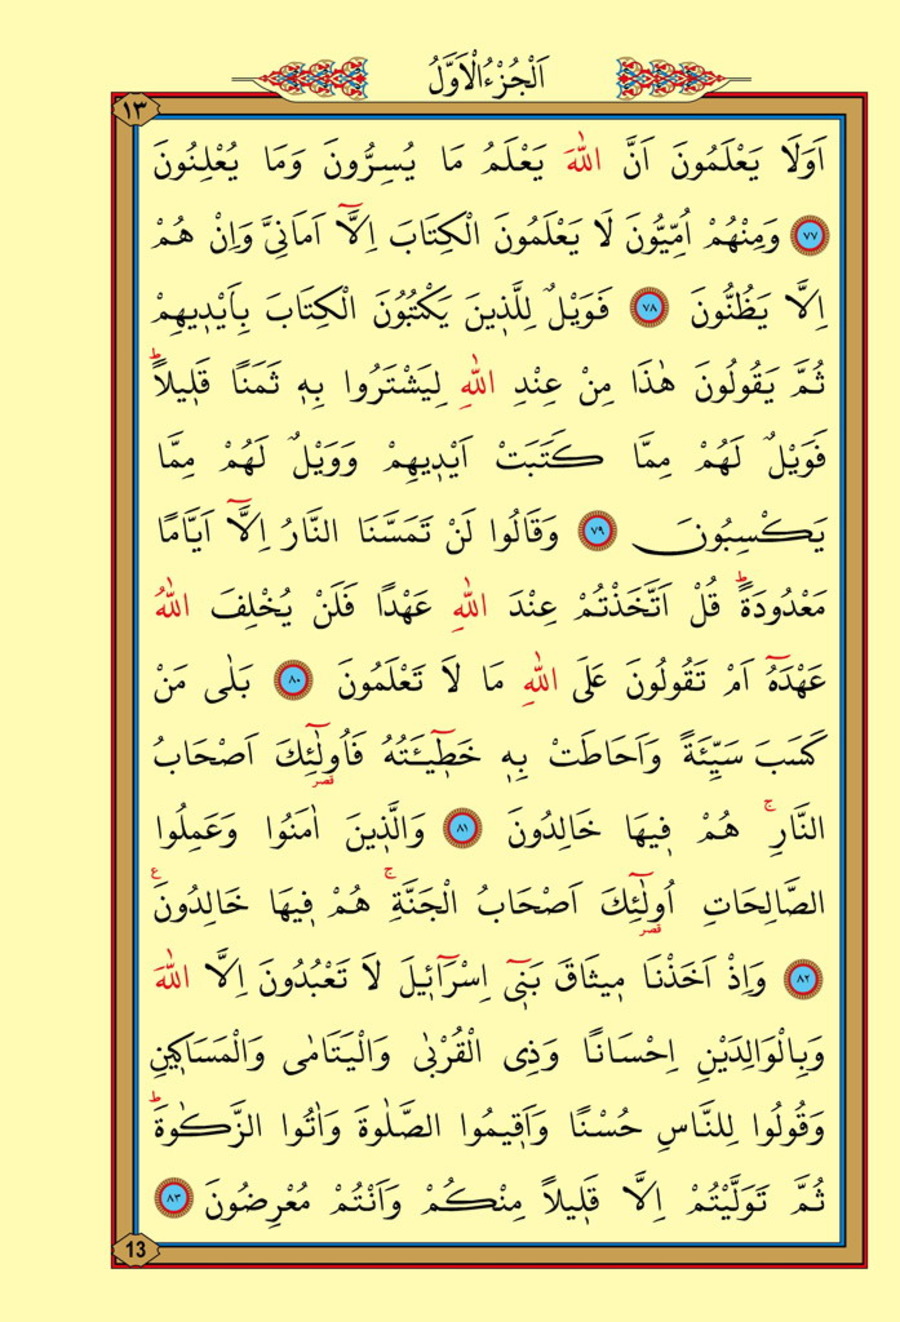 اَلْجُزْءُالْاَوَّلُ
١٣
اَوَلَا يَعْلَمُونَ اَنَّ اللّٰهَ يَعْلَمُ مَا يُسِرُّونَ وَمَا يُعْلِنُونَ
٧٧ وَمِنْهُمْ اُمِّيُّونَ لَا يَعْلَمُونَ الْكِتَابَ اِلَّٓا اَمَانِيَّ وَاِنْ هُمْ
اِلَّا يَظُنُّونَ ٧٨ فَوَيْلٌ لِلَّذ۪ينَ يَكْتُبُونَ الْكِتَابَ بِاَيْد۪يهِمْ
ثُمَّ يَقُولُونَ هٰذَا مِنْ عِنْدِ اللّٰهِ لِيَشْتَرُوا بِه۪ ثَمَنًا قَل۪يلاًۜ
فَوَيْلٌ لَهُمْ مِمَّا كَتَبَتْ اَيْد۪يهِمْ وَوَيْلٌ لَهُمْ مِمَّا
يَكْسِبُونَ ٧٩ وَقَالُوا لَنْ تَمَسَّنَا النَّارُ اِلَّٓا اَيَّامًا
مَعْدُودَةًۜ قُلْ اَتَّخَذْتُمْ عِنْدَ اللّٰهِ عَهْدًا فَلَنْ يُخْلِفَ اللّٰهُ
عَهْدَهُٓ اَمْ تَقُولُونَ عَلَى اللّٰهِ مَا لَا تَعْلَمُونَ ٨٠ بَلٰى مَنْ
كَسَبَ سَيِّئَةً وَاَحَاطَتْ بِه۪ خَط۪ٓيـَٔتُهُ فَاُو۬لٰٓئِكَ اَصْحَابُ
النَّارِۚ هُمْ ف۪يهَا خَالِدُونَ ٨١ وَالَّذ۪ينَ اٰمَنُوا وَعَمِلُوا
الصَّالِحَاتِ اُو۬لٰٓئِكَ اَصْحَابُ الْجَنَّةِۚ هُمْ ف۪يهَا خَالِدُونَ۟
٨٢ وَاِذْ اَخَذْنَا م۪يثَاقَ بَن۪ٓي اِسْرَٓائ۪لَ لَا تَعْبُدُونَ اِلَّا اللّٰهَ
وَبِالْوَالِدَيْنِ اِحْسَانًا وَذِي الْقُرْبٰى وَالْيَتَامٰى وَالْمَسَاك۪ينِ
وَقُولُوا لِلنَّاسِ حُسْنًا وَاَق۪يمُوا الصَّلٰوةَ وَاٰتُوا الزَّكٰوةَۜ
ثُمَّ تَوَلَّيْتُمْ اِلَّا قَل۪يلاً مِنْكُمْ وَاَنْتُمْ مُعْرِضُونَ ٨٣
13